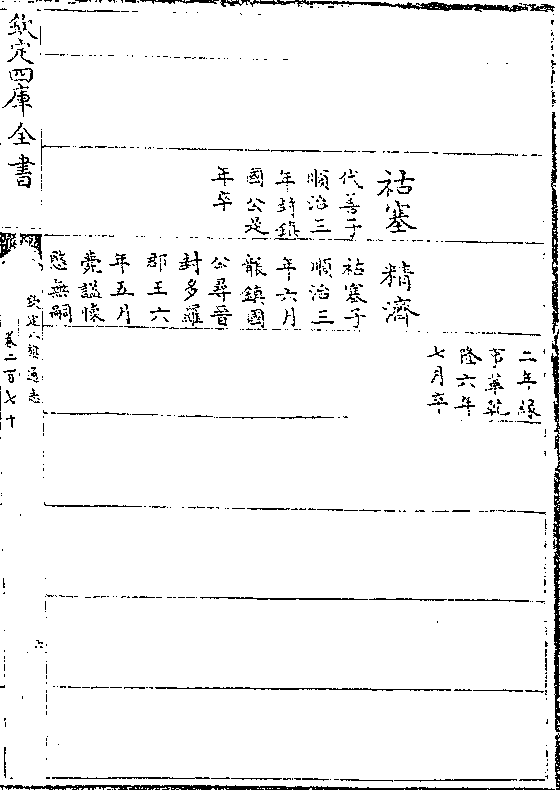 二年緣
事革乾
隆六年
七月卒
祜塞
代善子
順治三
年封鎮
國公是
年卒
精濟
祜塞子
順治三
年六月
襲鎮國
公尋晉
封多羅
郡王六
年五月
薨諡懷
愍無嗣
欽定四庫全書
欽定八旗通志
卷二百七十
六